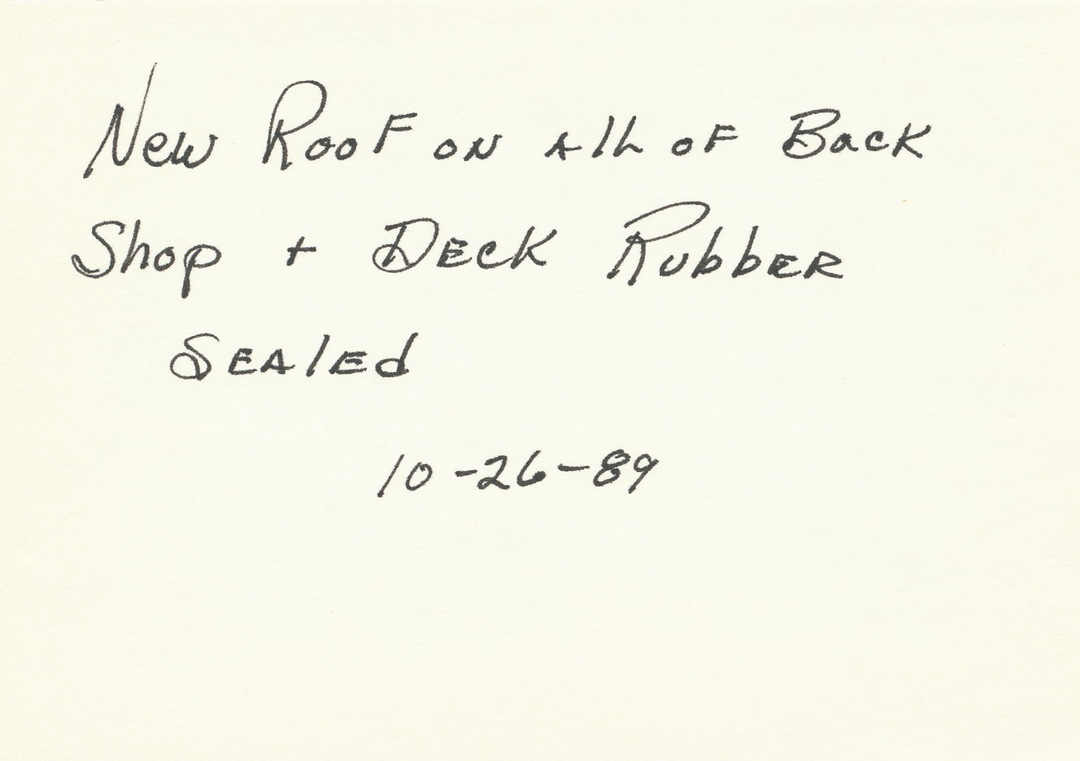 New Roof on all of Back
Shop + Deck Rubber
Sealed
10-26-89